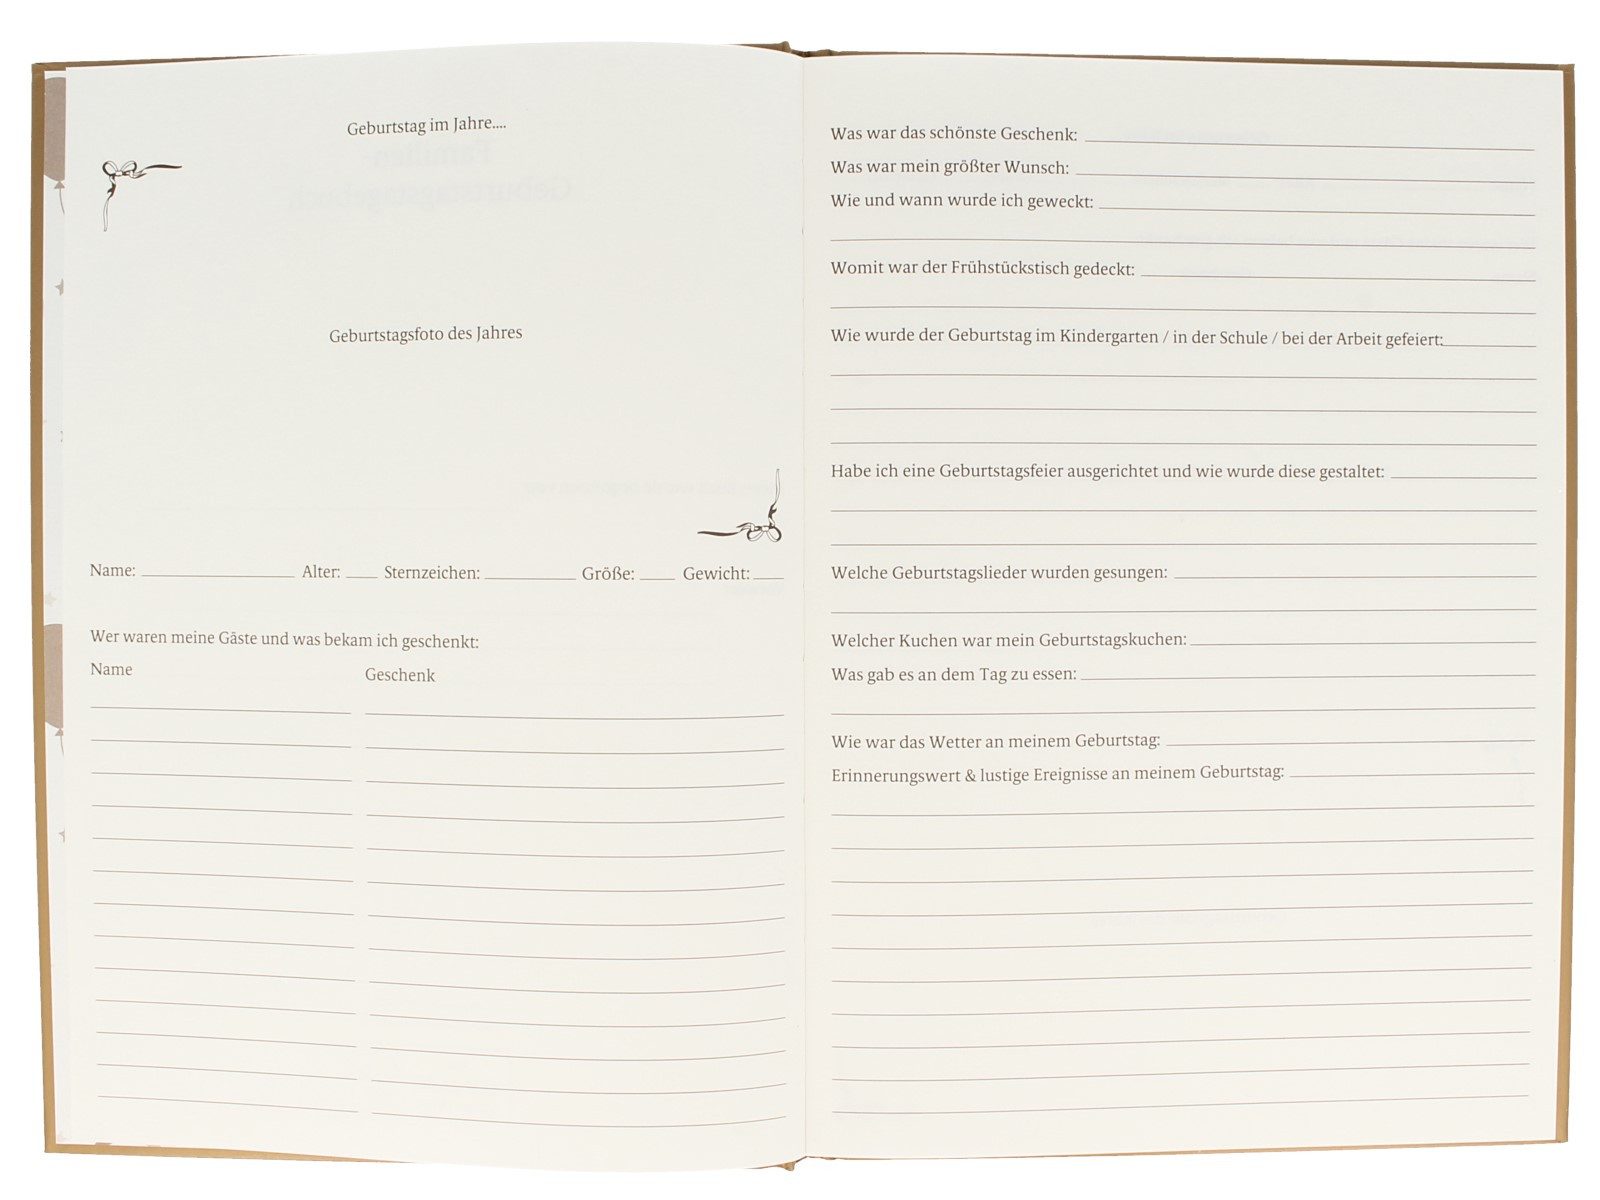 Geburtstag im Jahre....
Geburtstagsfoto des Jahres
Name: Alter: Sternzeichen: Größe: Gewicht:
Wer waren meine Gäste und was bekam ich geschenkt:
Name Geschenk
Was war das schönste Geschenk:
Was war mein größter Wunsch:
Wie und wann wurde ich geweckt:
Womit war der Frühstückstisch gedeckt:
Wie wurde der Geburtstag im Kindergarten / in der Schule / bei der Arbeit gefeiert:
Habe ich eine Geburtstagsfeier ausgerichtet und wie wurde diese gestaltet:
Welche Geburtstagslieder wurden gesungen:
Welcher Kuchen war mein Geburtstagskuchen:
Was gab es an dem Tag zu essen:
Wie war das Wetter an meinem Geburtstag:
Erinnerungswert & lustige Ereignisse an meinem Geburtstag: